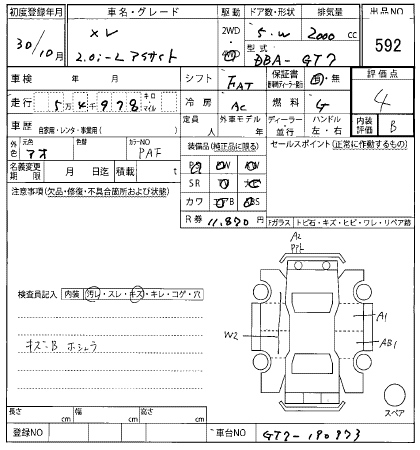 初度登録年月 車名・グレード 駆動 ドア数・形状 排気量 出品NO
30/10月 XV 2WD 5・W 2000 cc 592
2.0i-L アイサイト 4WD 型式 DBA-GT7
車検 年 月 シフト FAT 保証書 有・無 評価点
走行 5万4千978 キロ マイル 冷房 AC 燃料 G 4
車歴 自家用・レンタ・事業用( ) 定員 外車モデル 年 ディーラー 並行 ハンドル 左・右 内装評価 B
外色 元色 アオ 色替 カラーNO PAF 装備品(純正品に限る) セールスポイント(正常に作動するもの)
名義変更期限 月 日迄 積載 t PS AW PW
注意事項(欠品・修復・不具合箇所および状態) SR TV
カワ エアB ABS
R券 11,870円
Fガラス トビ石・キズ・ヒビ・ワレ・リペア跡
A2
検査員記入 内装 汚レ・スレ・キズ・キレ・コゲ・穴
A1
W2
AB1
キズB
スペア
長さ cm 幅 cm 高さ cm
登録NO 車台NO GT7-190973